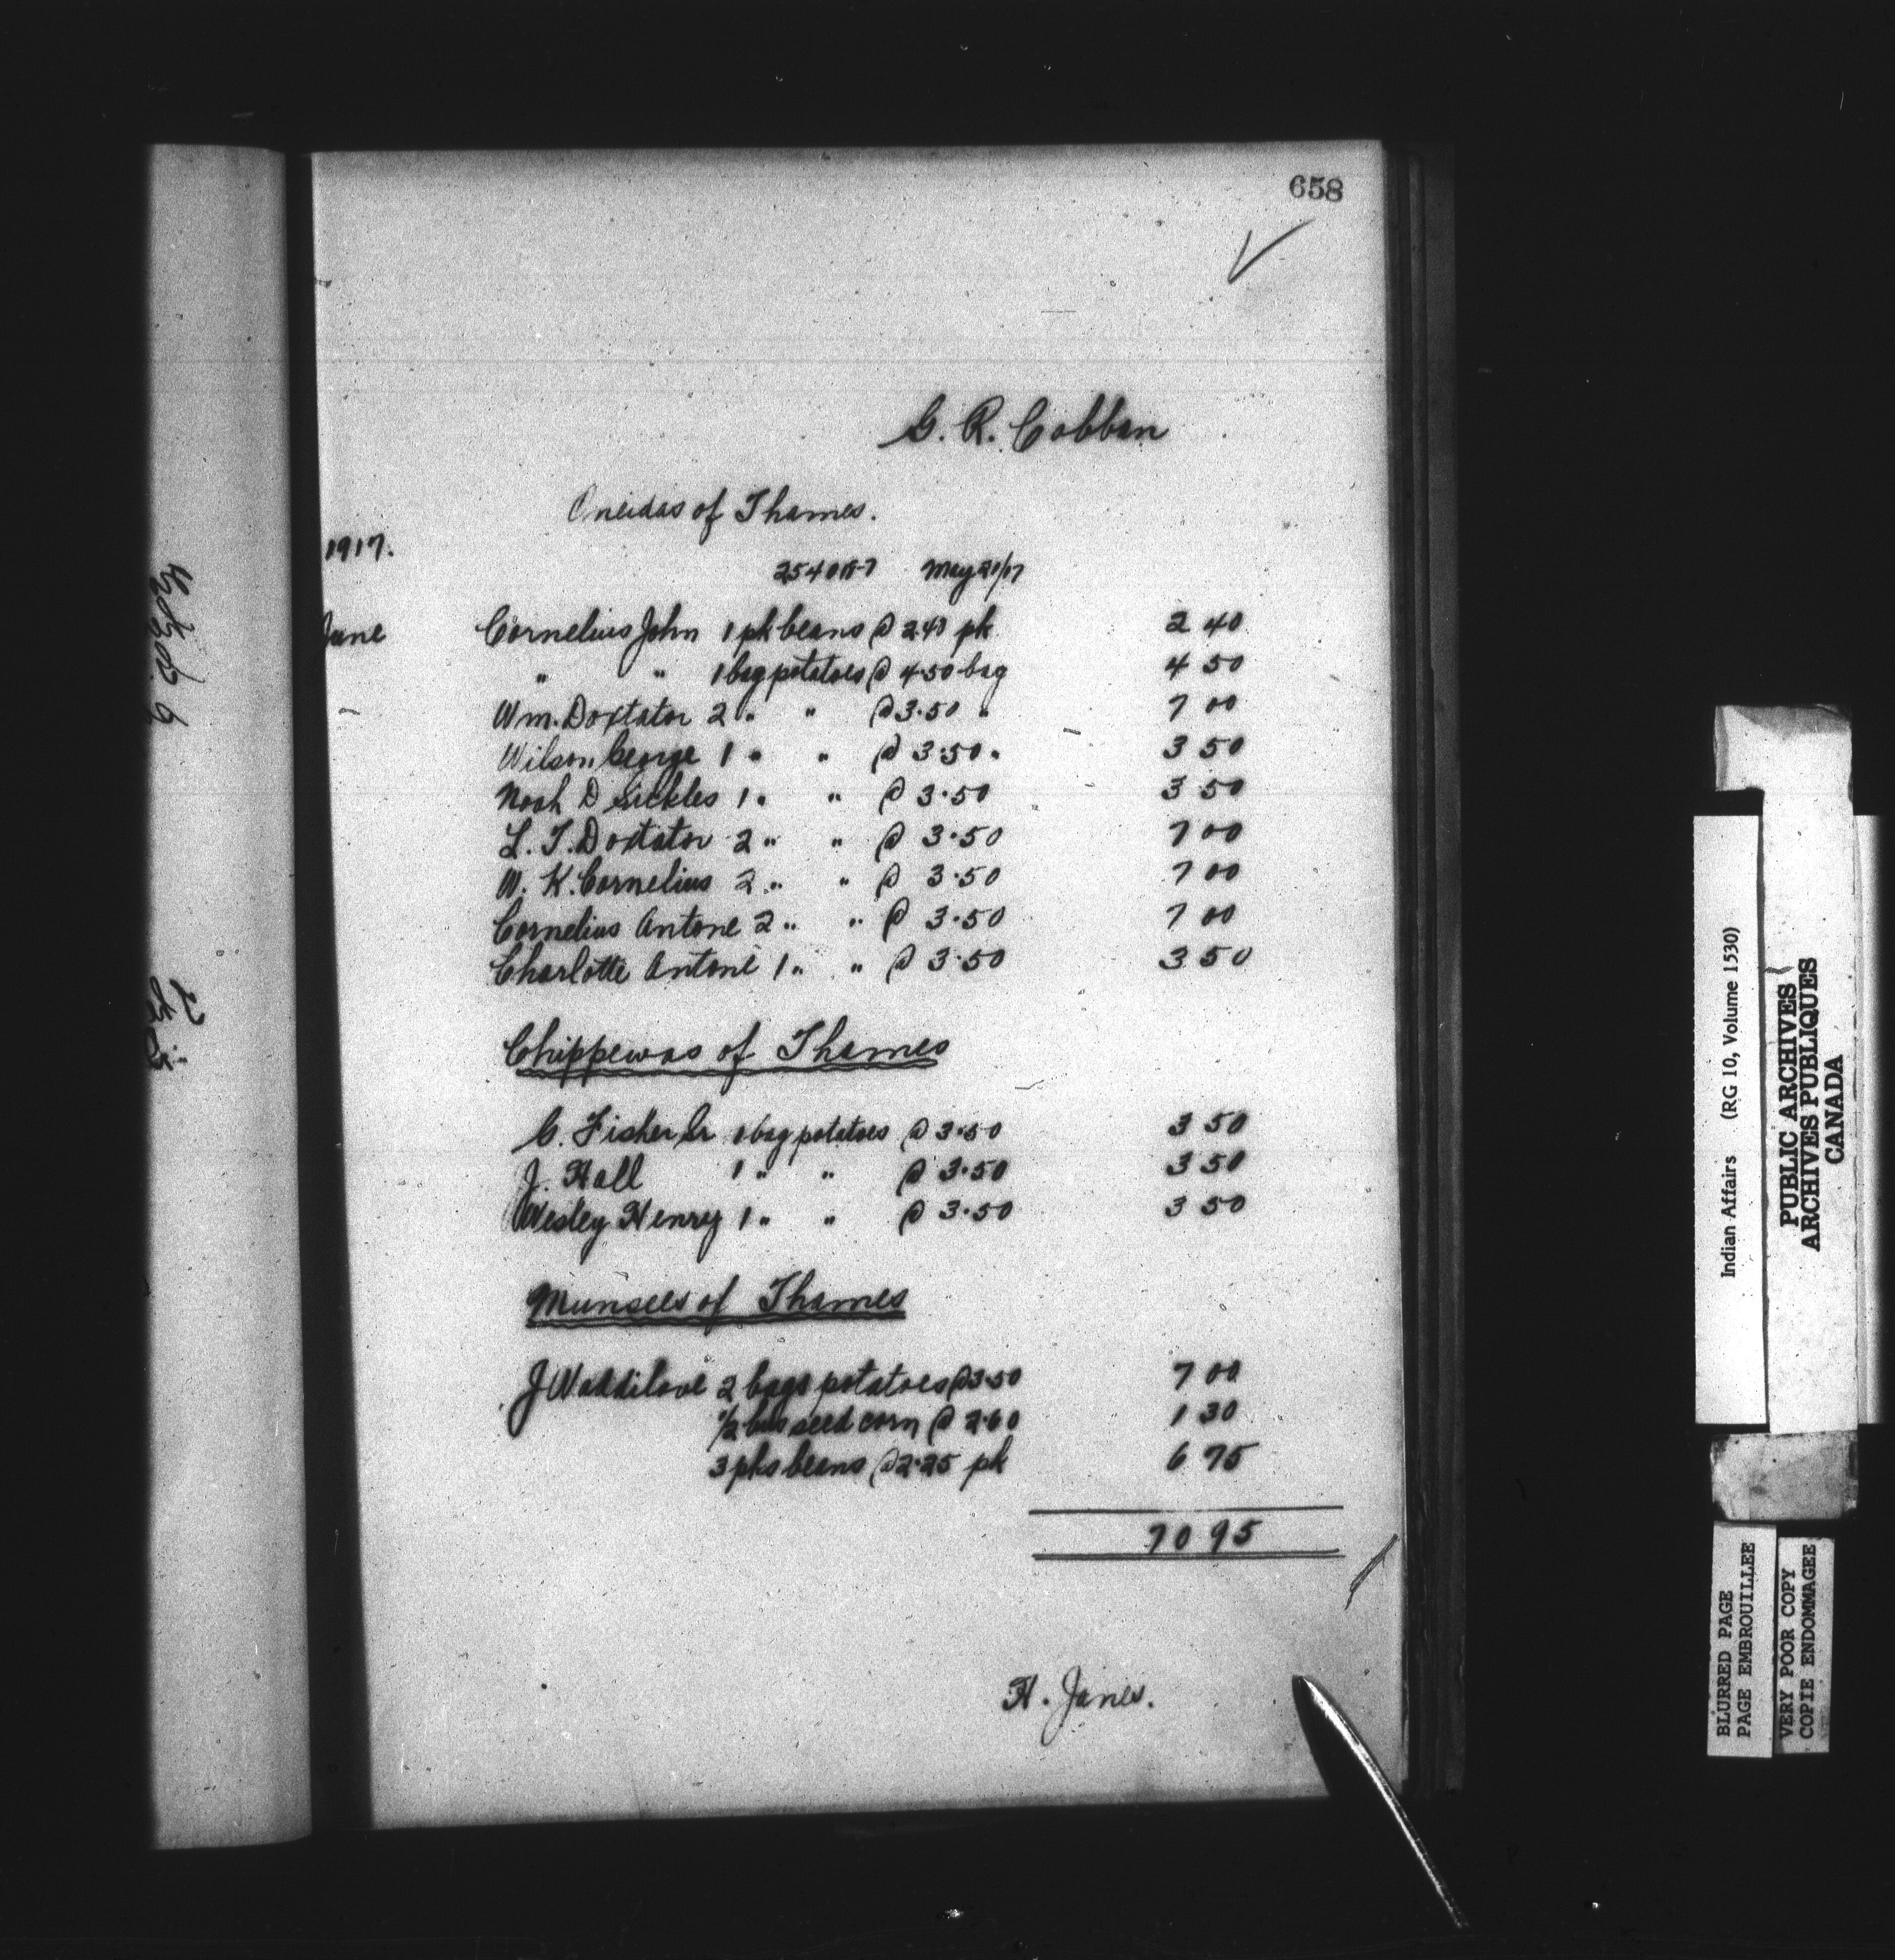 658
G. R. Cobban
Oneidas of Thames.
1917.
254018-7 May 21/17
June Cornelius John 1 pk beans @ 2.40 pk 2 40
" " 1 bag potatoes @ 4.50 bag 4 50
Wm. Doxtator 2 " " @ 3.50 " 7 00
Wilson George 1 " " @ 3.50 " 3 50
Noah D Sickles 1 " " @ 3.50 3 50
L. T. Doxtator 2 " " @ 3.50 7 00
W. K. Cornelius 2 " " @ 3.50 7 00
Cornelius Antone 2 " " @ 3.50 7 00
Charlotte Antone 1 " " @ 3.50 3 50
Chippewas of Thames
C. Fisher Sr 1 bag potatoes @ 3.50 3 50
J. Hall 1 " " @ 3.50 3 50
Wesley Henry 1 " " @ 3.50 3 50
Munsees of Thames
J Waddilove 2 bags potatoes @ 3.50 7 00
1/2 bus seed corn @ 2.60 1 30
3 pks beans @ 2.25 pk 6 75
70 95
H. Janes.
Indian Affairs (RG 10, Volume 1530)
PUBLIC ARCHIVES
ARCHIVES PUBLIQUES
CANADA
BLURRED PAGE
PAGE EMBROUILLEE
VERY POOR COPY
COPIE ENDOMMAGEE